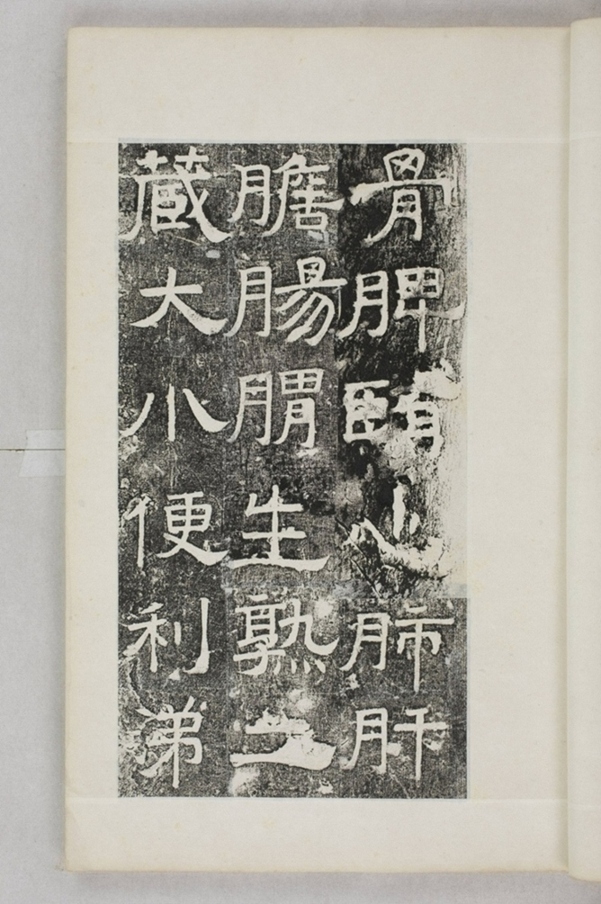 骨脾腎心肺肝
膽腸胃生熟二
蔵大小便利弟